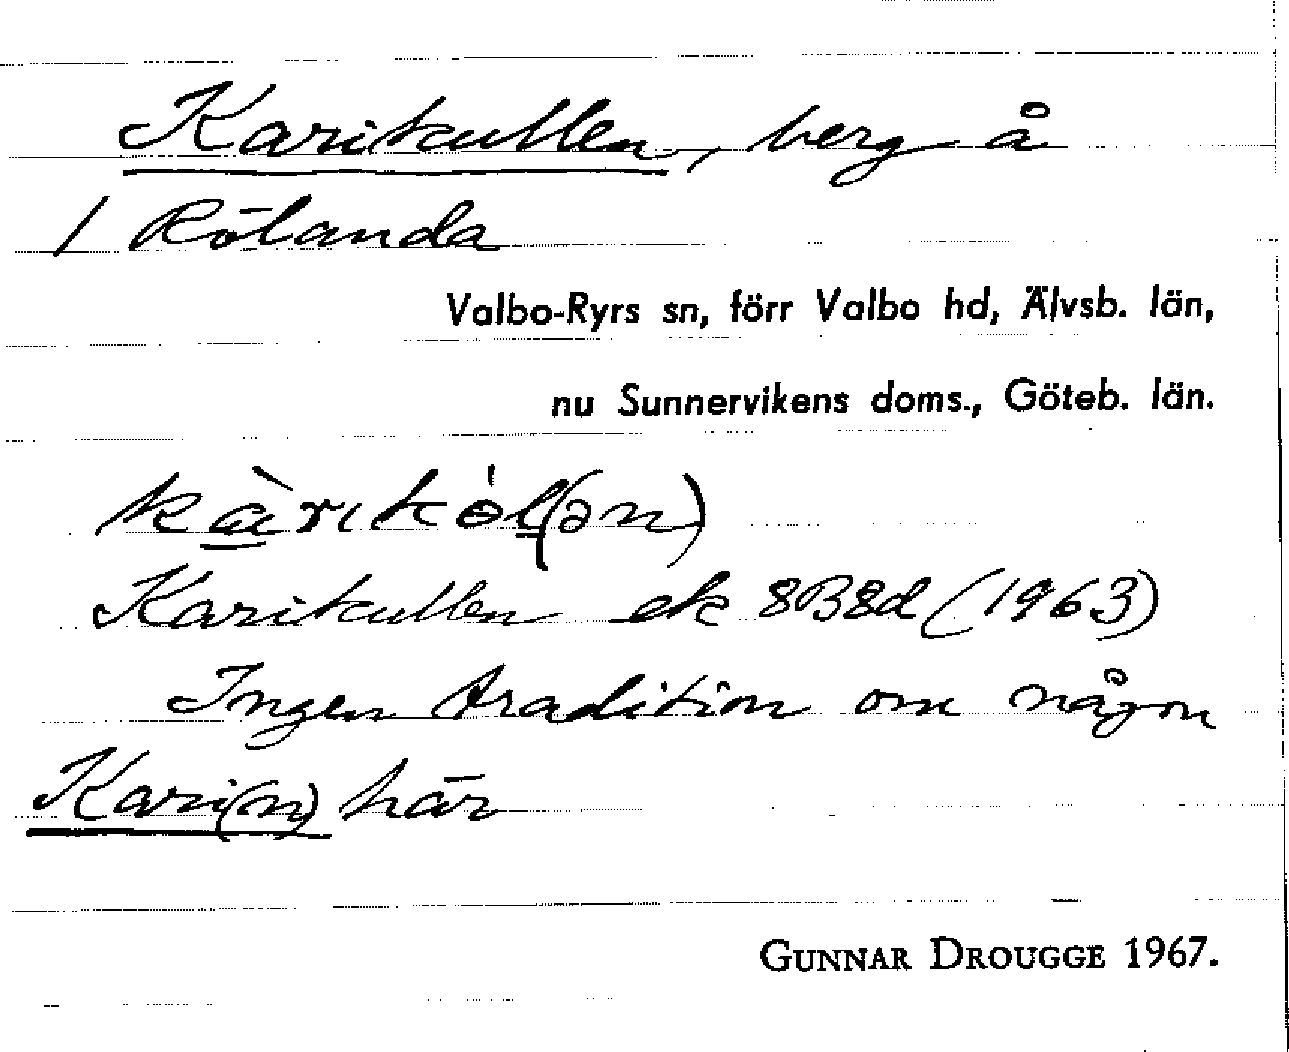 Karikullen, berg å
/ Rölanda
Valbo-Ryrs sn, förr Valbo hd, Älvsb. län,
nu Sunnervikens doms., Göteb. län.
kàrıkól(ən)
Karikullen ek 8B8d (1963)
Ingen tradition om någon
Kari(n) här
GUNNAR DROUGGE 1967.